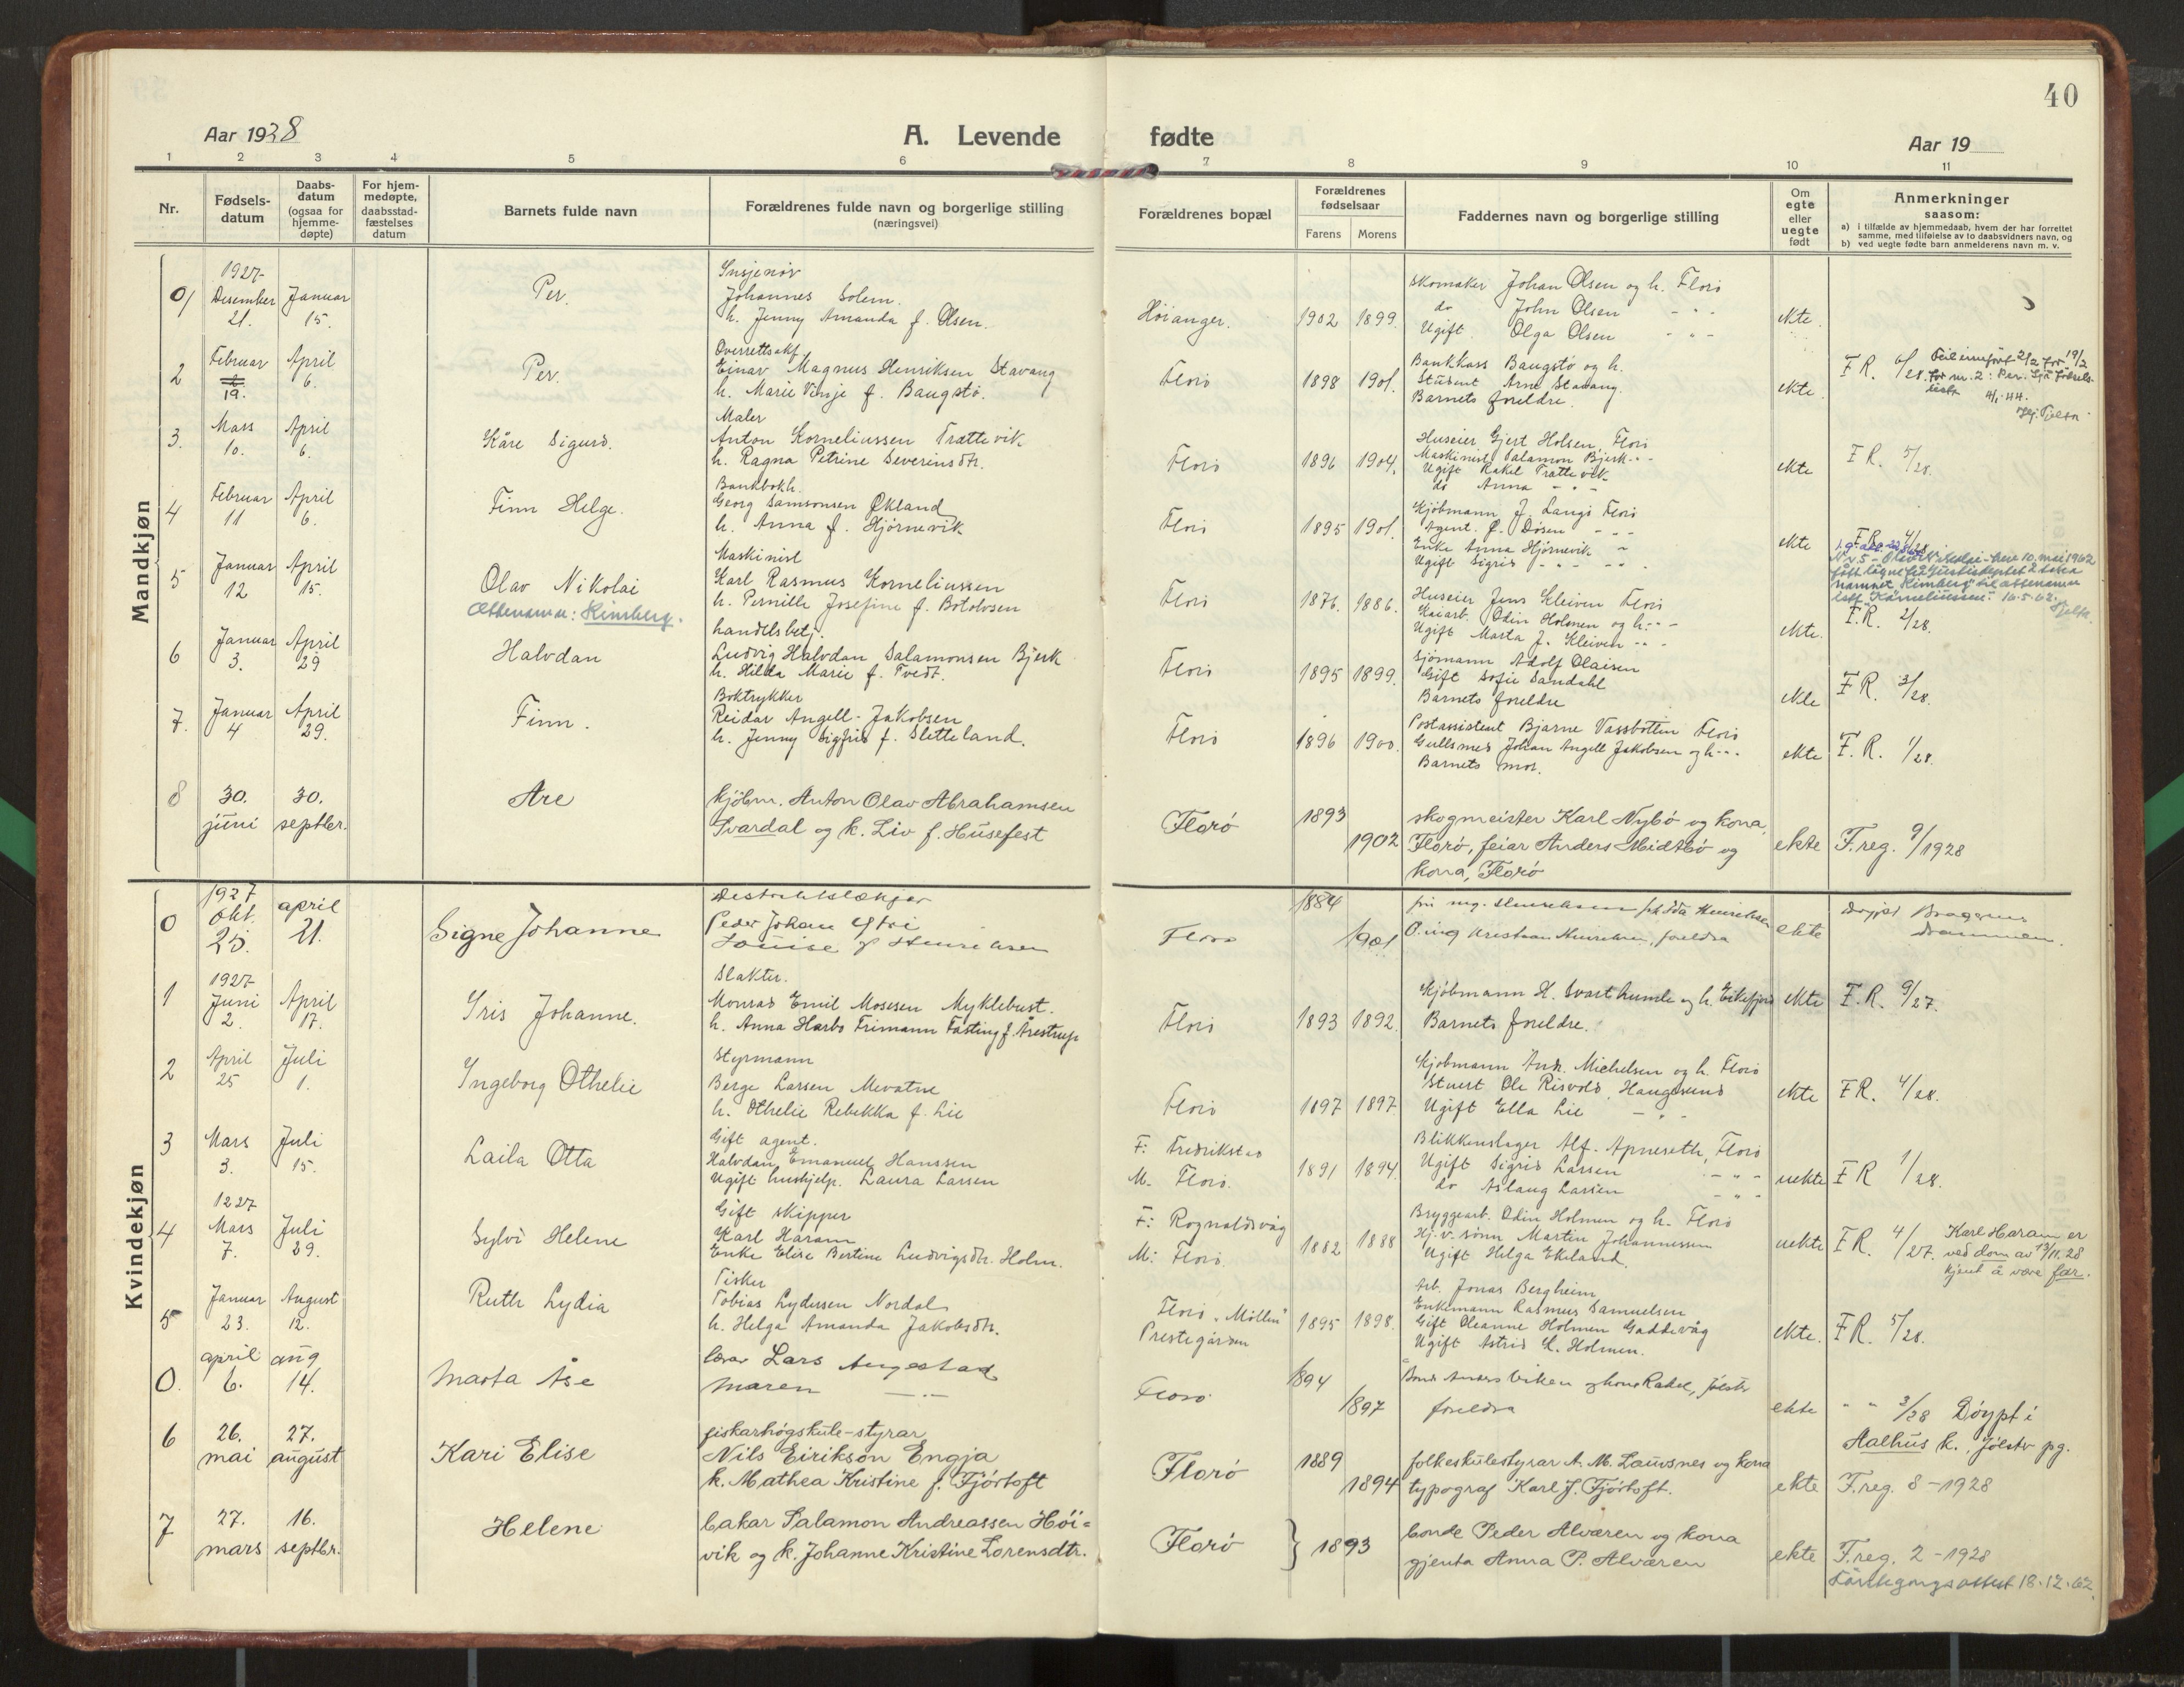 40
Aar 1928
A. Levende fødte
Aar 19
1 2 3 4 5 6 7 8 9 10 11
Nr.
Fødsels-
datum
Daabs-
datum
(ogsaa for
hjemme-
døpte)
For hjem-
medøpte,
daabsstad-
fæstelses
datum
Barnets fulde navn
Forældrenes fulde navn og borgerlige stilling
(næringsvei)
Forældrenes bopæl
Forældrenes
fødselsaar
Farens Morens
Faddernes navn og borgerlige stilling
Om
egte
eller
uegte
født
Anmerkninger
saasom:
a) i tilfælde av hjemmedaab, hvem der har forrettet
samme, med tilføielse av to daabsvidners navn, og
b) ved uegte fødte barn anmelderens navn m. v.
Mandkjøn
0/
1927
Desember
21.
Januar
15.
Per.
Insjenør
Johannes Solem.
h. Jenny Amanda f. Olsen.
Høianger.
1902 1899.
Skomaker Johan Olsen og h. Florø
do John Olsen - " -
Ugift Olga Olsen - " -
ekte.
2
Februar
19.
April
6.
Per.
Overrettssakf.
Einar Magnus Henriksen Stavang
h. Marie Vinje f. Baugstø.
Florø
1898 1901.
Bankkass Baugstø og h.
Student Arne Stavang.
Barnets foreldre.
ekte.
F R. 6/28. Feil innført 2/2 for 19/2
for nr. 2: Per. Sjå fødsels-
liste 4/1-44.
3.
Mars
10.
April
6.
Kåre Sigurd.
Maler
Anton Korneliussen Trættevik
h. Ragna Petrine Severinsdtr.
Florø
1896 1904.
Huseier Gjert Holsen, Florø
Maskinist Salamon Bjerk - " -
Ugift Rakel Trættevik
do Anna - " -
ekte
F R. 5/28.
4
Februar
11
April
6.
Finn Helge.
Bankbokh.
Georg Samsonsen Økland
h. Anna f. Hjørnevik
Florø
1895 1901.
Kjøbmann J. Langø Florø
Agent. P. Døsen - " -
Enke Anna Hjørnevik "
Ugift Sigrid - " -
ekte
F.R. 4/28
5
Januar
12
April
15.
Olav Nikolai
Ættenamn: Kinnberg.
Maskinist
Karl Rasmus Korneliussen
h. Pernille Josefine f. Botolvsen
Florø
1876. 1886.
Huseier Jens Kleiven Florø
Kaiarb. Odin Holmen og h. - " -
Ugift Marta J. Kleiven - " -
ekte.
Nr 5 - Olav Nikolai - 10. mai 1962
namnet "Kinnberg" til ættenamn
istf. "Korneliussen". 16.5.62.
F.R. 2/28.
6
Januar
3.
April
29
Halvdan
handelsbetj.
Ludvig Halvdan Salamonsen Bjerk
h. Hilda Marie f. Tvedt.
Florø
1895 1899.
Sjømann Adolf Olaisen
Gift Sofie Sandahl
Barnets foreldre
ekte
F R. 3/28.
7.
Januar
4
April
29.
Finn.
Boktrykker
Reidar Angell-Jakobsen
h. Jenny Sigfrid f. Sletteland.
Florø
1896 1900.
Postassistent Bjarne Vassbotten Florø
Gullsmed Johan Angell Jakobsen og h - " -
Barnets mor.
ekte
F. R. 1/28.
8
30.
juni
30.
septbr.
Are
kjöbm. Anton Olav Abrahamsen
Svardal og k. Liv f. Husefest
Florö
1893
1902
skogmeister Karl Nybö og kona,
Florö, feiar Anders Midtbö og
kona, Florö
ekte
F.reg. 9/1928
Kvindekjøn
0
1927
Okt.
25.
april
21.
Signe Johanne
Distriktslækjer
Peder Johan
Louise f Henriksen
Florø
1884
1901
O.ing Kristian Henriksen, foreldra
ekte
Døypt Bragernes
Drammen.
1
1927
Juni
2.
April
17.
Iris Johanne.
Slakter.
Monrad Emil Mosesen Myklebust.
h. Anna Harbo Frimann Fasting f. Årestrup
Florø
1893 1892.
Kjøbmann H. Svarthumle og h. Eikefjord
Barnets foreldre.
ekte
F. R. 9/27.
2
April
25
Juli
1.
Ingeborg Othelie
Styrmann
Berge Larsen Mevatne
h. Othelie Rebekka f. Lie
Florø
1897 1897.
Kjøbmann And. Michelsen og h. Florø
Stuert Ole Risvold, Haugesund
Ugift Ella Lie - " -
ekte
F R. 4/28.
3
Mars
3.
Juli
15.
Laila Otta
Gift agent.
Halvdan Emanuel Hanssen
Ugift hushjelp. Laura Larsen
F: Fredrikstad
M. Florø.
1891 1894.
Blikkenslager Alf. Apneseth, Florø
Ugift Sigrid Larsen - " -
do Aslaug Larsen - " -
uekte
F R 1/28.
4
1927
Mars
7.
Juli
29.
Sylvi Helene
Gift skipper
Karl Haram
Enke Elise Bertine Ludvigsdtr. Holm.
F: Rognaldsvåg
M: Florø
1882 1888
Bryggearb. Odin Holmen og h. Florø
Hj. v. sønn Martin Johannessen
Ugift Helga Ekeland.
uekte
F R. 4/27. Karl Haram er
ved dom av 13/11.28
kjent å vera far.
5
Januar
23.
August
12.
Ruth Lydia
Fisker
Tobias Lydersen Nordal
h. Helga Amanda Jakobsdtr.
Florø "Møllen"
Prestegården
1895 1898.
Arb. Jonas Bergheim
Enkemann Rasmus Samuelsen
Gift Oleanne Holmen Gaddevåg
Ugift Astrid L. Holmen.
ekte.
F R. 5/28.
0.
april
6.
aug
14.
Marta Åse
lærar Lars Angestad
Maren - " -
Florø
1894
1897
Bonde Anders Viken og kona Rakel, Jølster
foreldra
ekte
" " 3/28 Döypt i
Aalhus k., Jølster pg.
6
26.
mai
27.
august
Kari Elise
fiskarhøgskule-styrar
Nils Eirikson Engja
k. Mathea Kristine f. Fjörtoft
Florö
1889
1894
folkeskulestyrar A. M. Lauvsnes og kona
typograf Karl J. Fjörtoft.
ekte
F.reg. 8 - 1928
7
27.
mars
16.
septbr.
Helene
bakar Salamon Andreassen Höi=
vik og k. Johanne Kristine Lorensdtr.
Florö
1893
bonde Peder Alværen og kona
gjenta Anna P. Alværen
ekte
F.reg. 2 - 1928
Förstegangsattest 18.12.62.